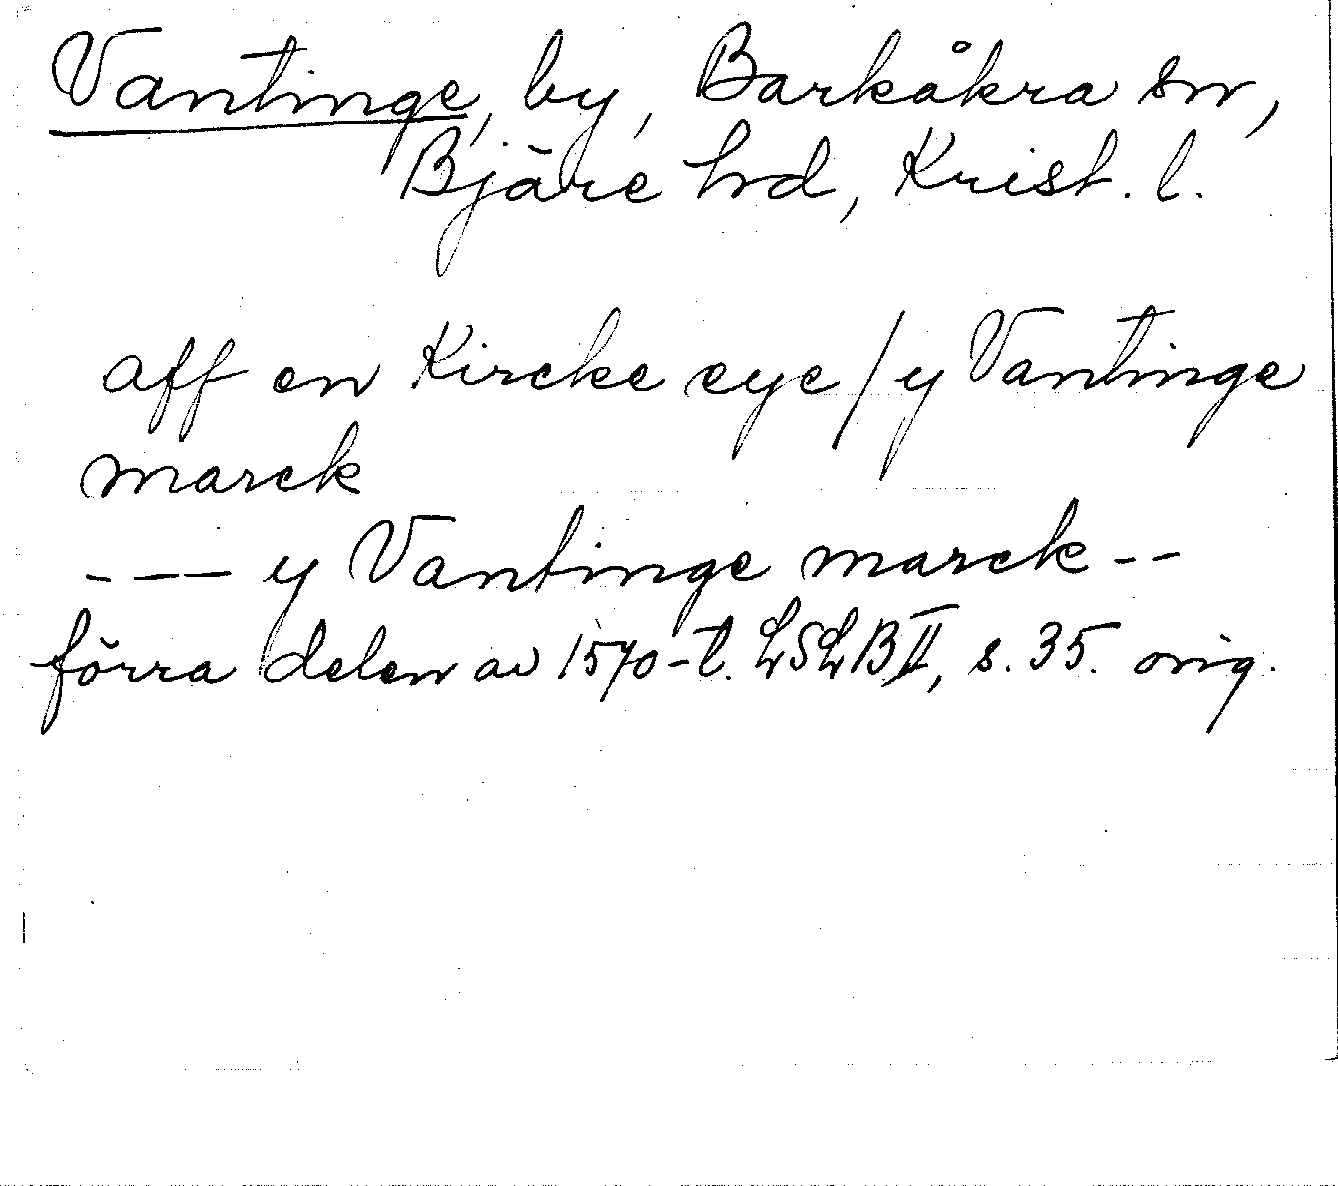 Vantinge, by, Barkåkra sn,
Bjäre hd, Krist. l.
aff en Kircke eye / y Vantinge
marck
--- y Vantinge marck --
förra delen av 1570-t. LSLB II, s. 35. orig.